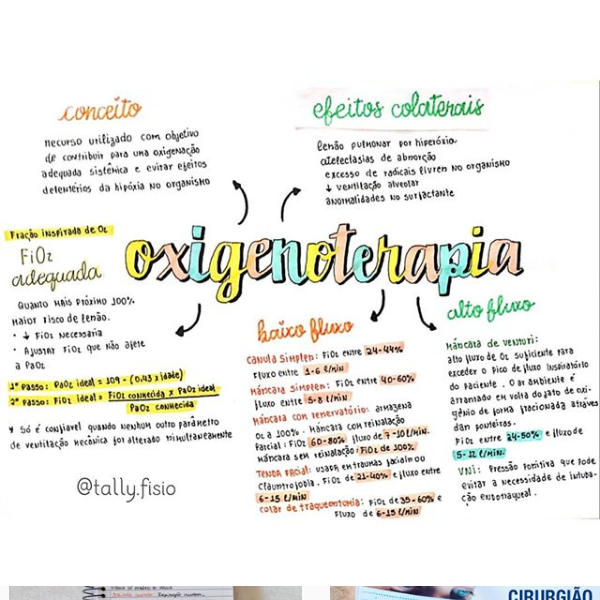 conceito
recurso utilizado com objetivo
de contribuir para uma oxigenação
adequada sistêmica e evitar efeitos
deletérios da hipóxia no organismo
efeitos colaterais
lesão pulmonar por hiperóxia
atelectasias de absorção
excesso de radicais livres no organismo
↓ ventilação alveolar
anormalidades no surfactante
oxigenoterapia
Fração inspirada de O₂
FiO₂
adequada
Quanto mais próximo 100%
maior risco de lesão.
• ↓ FiO₂ necessária
• Ajustar FiO₂ que não afete
a PaO₂
1º passo: PaO₂ ideal = 109 - (0,43 x idade)
2º passo: FiO₂ ideal = FiO₂ conhecida x PaO₂ ideal
PaO₂ conhecida
* Só é confiável quando nenhum outro parâmetro
de ventilação mecânica foi alterado simultaneamente
@tally.fisio
baixo fluxo
Cânula simples: FiO₂ entre 24-44%
Fluxo entre 1-6 l/min
Máscara simples: FiO₂ entre 40-60%
fluxo entre 5-8 l/min
Máscara com reservatório: armazena
O₂ a 100% • Máscara com reinalação
Parcial: FiO₂ 60-80% fluxo de 7-10 l/min.
Máscara sem reinalação: FiO₂ de 100%
Tenda facial: usada em traumas faciais ou
claustrofobia. FiO₂ de 21-40% e fluxo entre
6-15 l/min
Colar de traqueostomia: FiO₂ de 35-60% e
Fluxo de 6-15 l/min
alto fluxo
Máscara de Venturi:
alto fluxo de O₂ suficiente para
exceder o pico de fluxo inspiratório
do paciente. O ar ambiente é
arrastado em volta do jato de oxi-
gênio de forma fracionada através
das ponteiras.
FiO₂ entre 24-50% e fluxo de
5-12 l/min.
VNI: Pressão positiva que pode
evitar a necessidade de intuba-
ção endotraqueal.
CIRURGIÃO